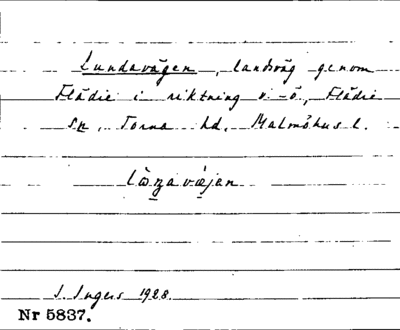 Lundavägen, landsväg genom
Flädie i riktning v.-ö., Flädie
sn, Torna hd. Malmöhus l.
I. Ingers 1928.
Nr 5837.